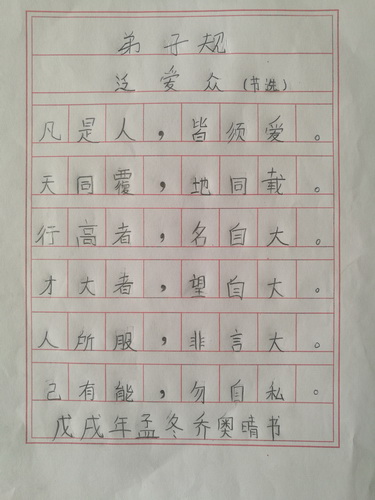 弟子规
泛爱众(节选)
凡是人，皆须爱。
天同覆，地同载。
行高者，名自大。
才大者，望自大。
人所服，非言大。
己有能，勿自私。
戊戌年孟冬乔奥晴书